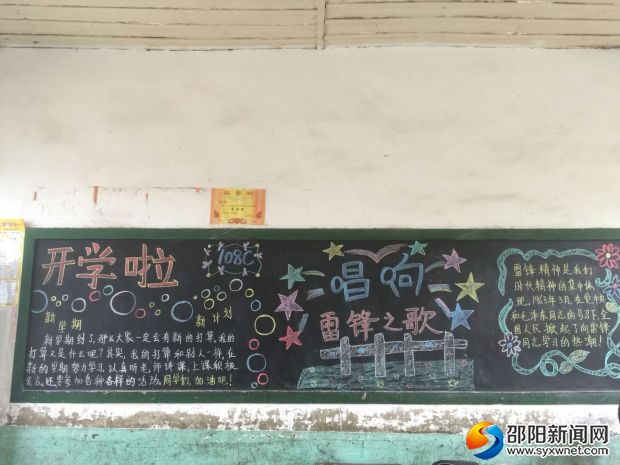 开学啦
108C
新学期 新计划
新学期到了,那么大家一定会有新的打算,我的
打算又是什么呢?其实,我的打算和别人一样,在
新的学期努力学习,认真听老师讲课,上课积极
发言,还要参加各种各样的活动。同学们,加油吧!
唱响
雷锋之歌
雷锋精神是我们
时代精神的集中体
现,1963年3月,在党中央
和毛泽东同志的号召下,全
国人民掀起了向雷锋
同志学习的热潮!
邵阳新闻网
www.syxwnet.com